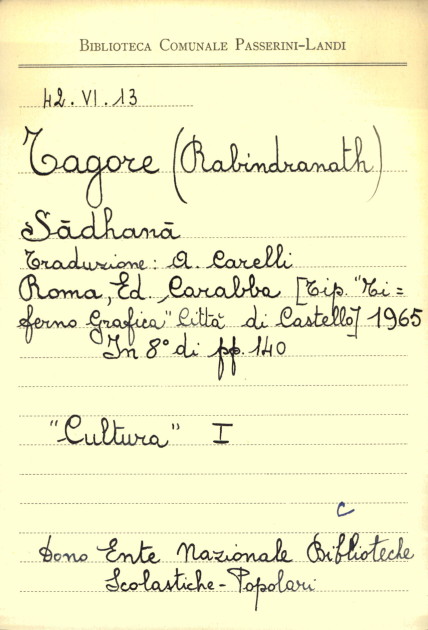 BIBLIOTECA COMUNALE PASSERINI-LANDI
42.VI.13
Tagore (Rabindranath)
Sādhanā
Traduzione: A. Carelli
Roma, Ed. Carabba [Tip. "Ti=
ferno Grafica" Città di Castello] 1965
In 8° di pp. 140
"Cultura" I
c
Dono Ente Nazionale Biblioteche
Scolastiche-Popolari